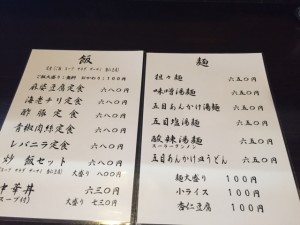 飯
ご飯大盛り無料 おかわり100円
麻婆豆腐定食 六八〇円
海老チリ定食 六八〇円
酢豚定食 六八〇円
青椒肉絲定食 六八〇円
レバニラ定食 六八〇円
炒飯セット 六八〇円
大盛り 八〇円
中華丼 六三〇円
スープ付) 大盛り 七三〇円
麺
担々麺 六五〇円
味噌湯麺 六五〇円
五目あんかけ湯麺 六五〇円
五目塩湯麺 六五〇円
酸辣湯麺 六五〇円
スーラータンメン
五目あんかけほうとん 六五〇円
麺大盛り 100円
小ライス 100円
杏仁豆腐 100円